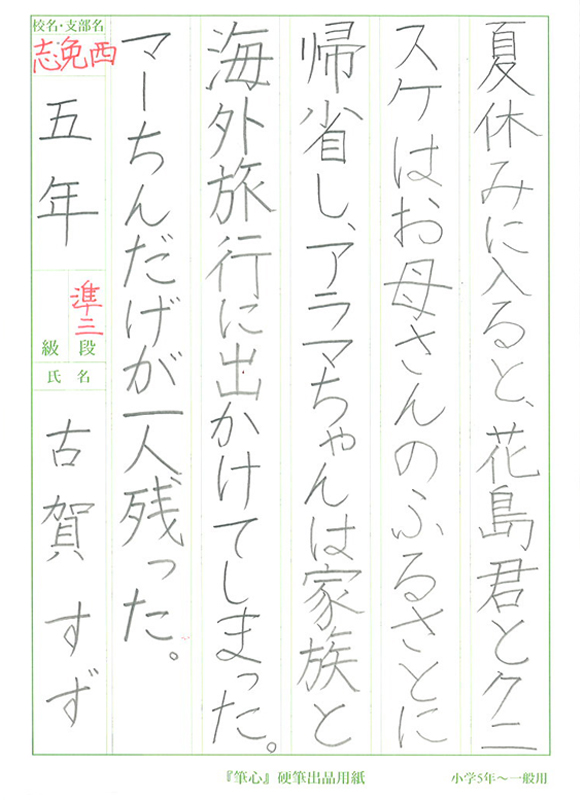 夏休みに入ると、花島君とクニ
スケはお母さんのふるさとに
帰省し、アラマちゃんは家族と
海外旅行に出かけてしまった。
マーちんだげが一人残った。
校名・支部名
志免西
五年
準三
級段
氏名
古賀すず
『筆心』硬筆出品用紙
小学5年〜一般用